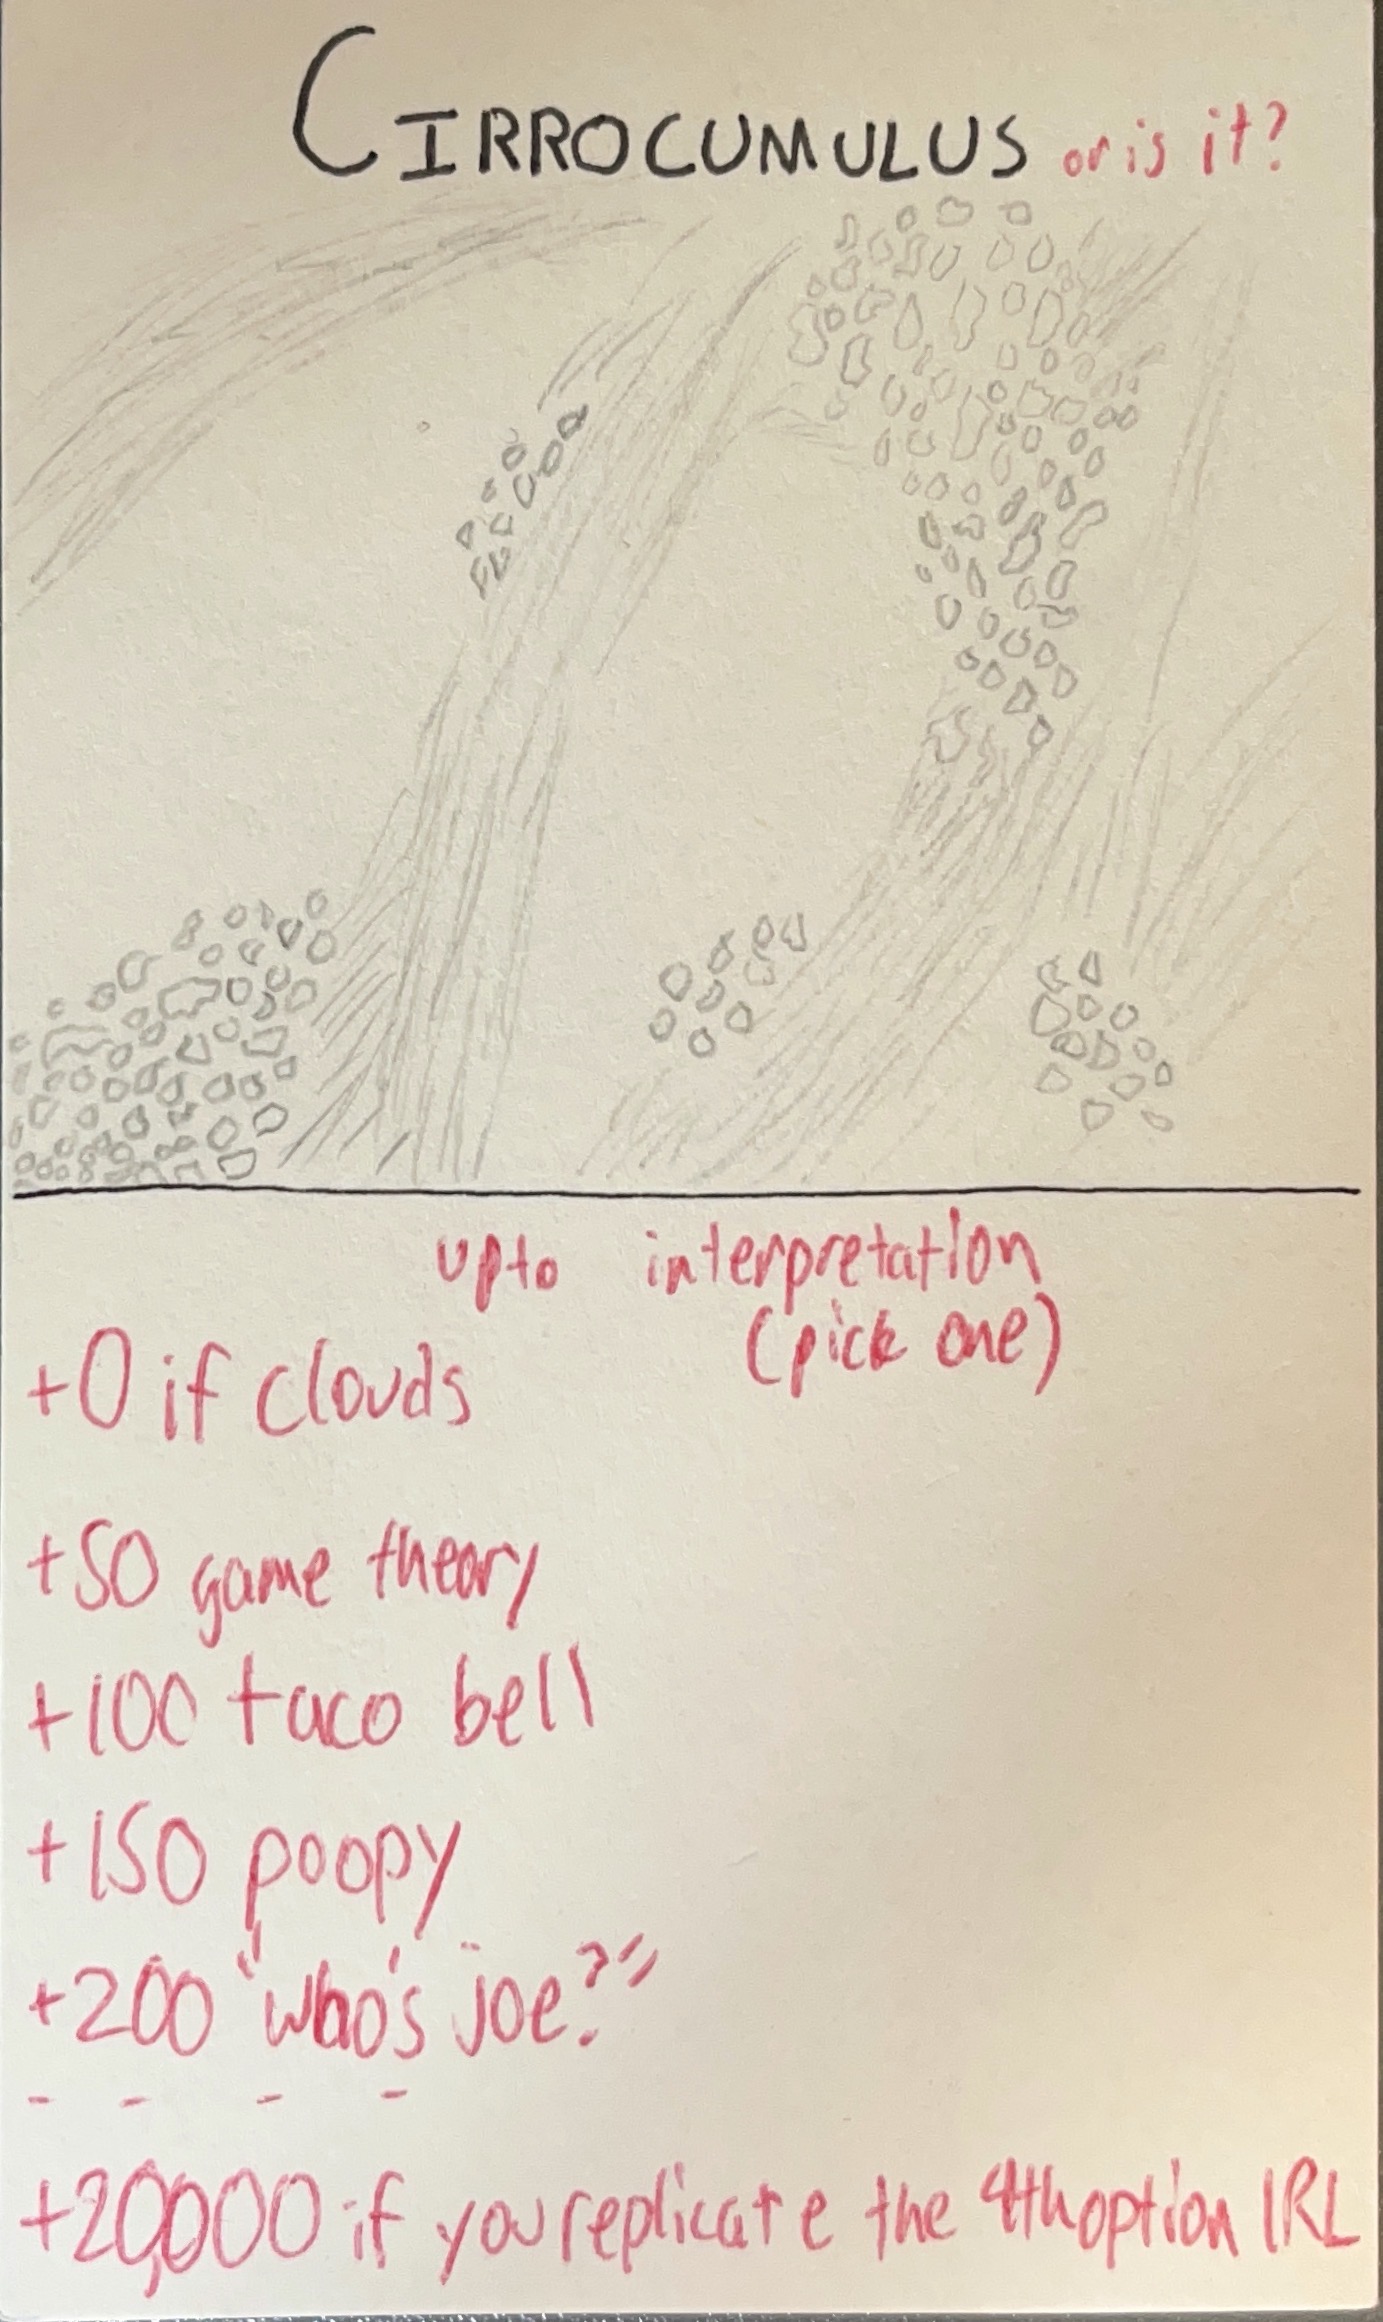 CIRROCUMULUS or is it?
upto interpretation
(pick one)
+0 if clouds
+50 game theory
+100 taco bell
+150 poopy
+200 "who's joe?"
- - - -
+20,000 if you replicate the 4th option IRL